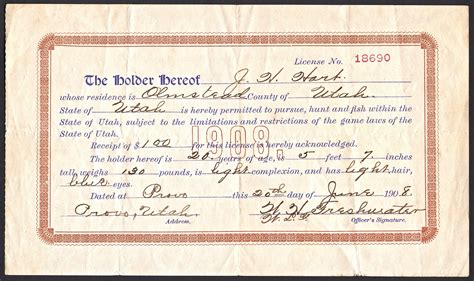 License No. 18690
The Holder Hereof J. H. Hart
whose residence is Olmstead County of Utah
State of Utah is hereby permitted to pursue, hunt and fish within the
State of Utah, subject to the limitations and restrictions of the game laws of the
State of Utah.
1908.
Receipt of $1.00 for this license is hereby acknowledged.
The holder hereof is 20 years of age, is 5 feet 7 inches
tall, weighs 130 pounds, is light complexion, and has light hair,
blue eyes.
Dated at Provo this 20th day of June 1908
Provo, Utah. H. H. Freshwater
Address. Officer's Signature.